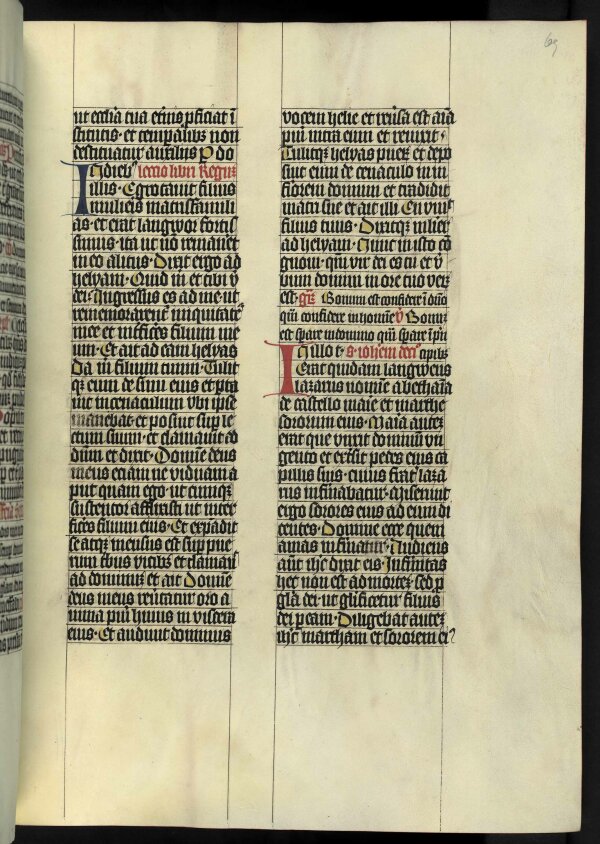 ut ecclia tua et eius pficiat ĩ
stitutis · et tempalibꝫ non
destituatur auxiliis P do
In dieb lectio libri Regum
illis · Egrotauit filius
mulieris matrisfamili
as · et erat langwor fortis
simus · ita ut nō remaneret
in eo alitus · Dixit ergo ad
helyam · Quid m̄ et tibi v̄
dei · Ingressus es ad me ut
rememorarent̄ iniquitates
mee et int̄ficeres filium me
um · Et ait ad eam helyas
Da m̄ filium tuum · Tulit
qꝫ eum de sinu eius et porta
uit in cenaculum vbi ipse
manebat · et posuit sup le
ctum suum · et clamauit ad
dūm et dixit · Domīe deus
meus eciam ne viduam a
put quam ego · ut cumqꝫ
sustentor afflixisti ut inter
ficēs filium eius · Et expādit
se atqꝫ mensus est sup pue
rum tībus vicibꝫ et clamauit
ad dominū et ait Domīe
deus meus reūtatur oro a
nima pūi huius in viscera
eius · Et audiuit dominus
vocem helie et reūsa est aīa
pūi intra eum et reuixit ·
Tulitqꝫ helyas puerū et depo
suit eum de cenaculo in in
fiorem domum et tradidit
matri sue et ait illi En viuit
filius tuus · Dixitqꝫ mulier
ad helyam · Nunc in isto co
gnoui · qm̄ vir dei es tu et v̄
bum domini in ore tuo verū
est · gr̄ Bonum est confidere ī dn̄o
qm̄ confidere in homīe V̄ Bonū
est spare in domino qm̄ spare ī pn̄
In illo t · s · iohem Erat disci pulis
Erat quidam langwens
lazarus nomīe a bethaīa
de castello maīe et marthe
sororum eius · Maīa autē
erat que vnxit dominū vn
gento et extsit pedes eius ca
pillis suis · cuius frat̄ laza
rus infirmabatur · Miserunt
ergo sorores eius ad eum di
centes · Domine ecce quem
amas infirmatur · Audiens
aūt ihc dixit eis · Infirmitas
hec non est ad mortē sed p
glīa dei · ut glificetur filius
dei p eam · Diligebat autē
ihc martham et sororem ei
69